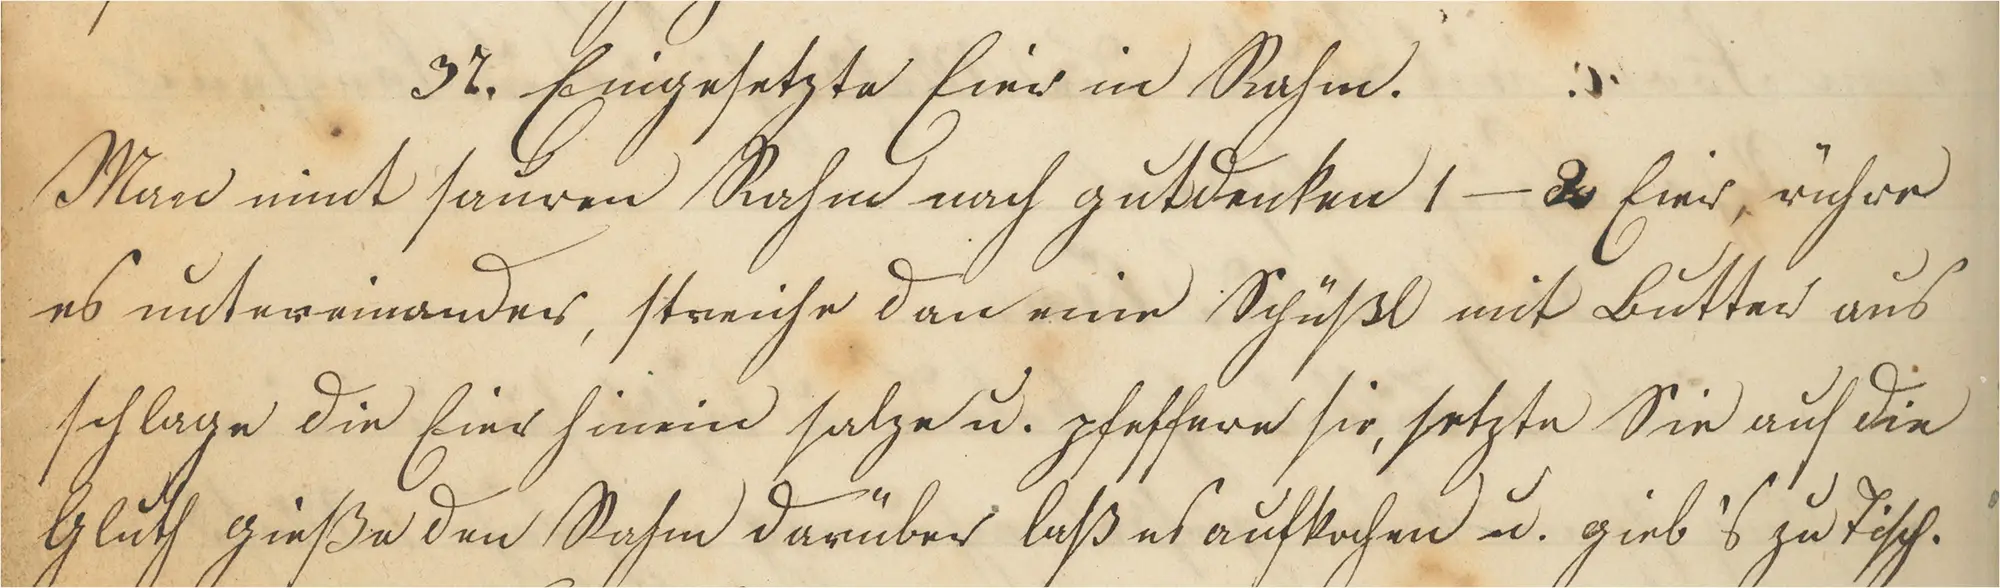 37. Eingesetzte Eier in Rahm.
Man nimt sauren Rahm nach gutdenken 1 – 2 Eier, rühre
es untereinander, streiche dan eine Schüßl mit Butter aus
schlage die Eier hinein salze u. pfeffere sie, setzte Sie auf die
Gluth gieße den Rahm darüber laß es aufkochen u. gieb's zu Tisch.